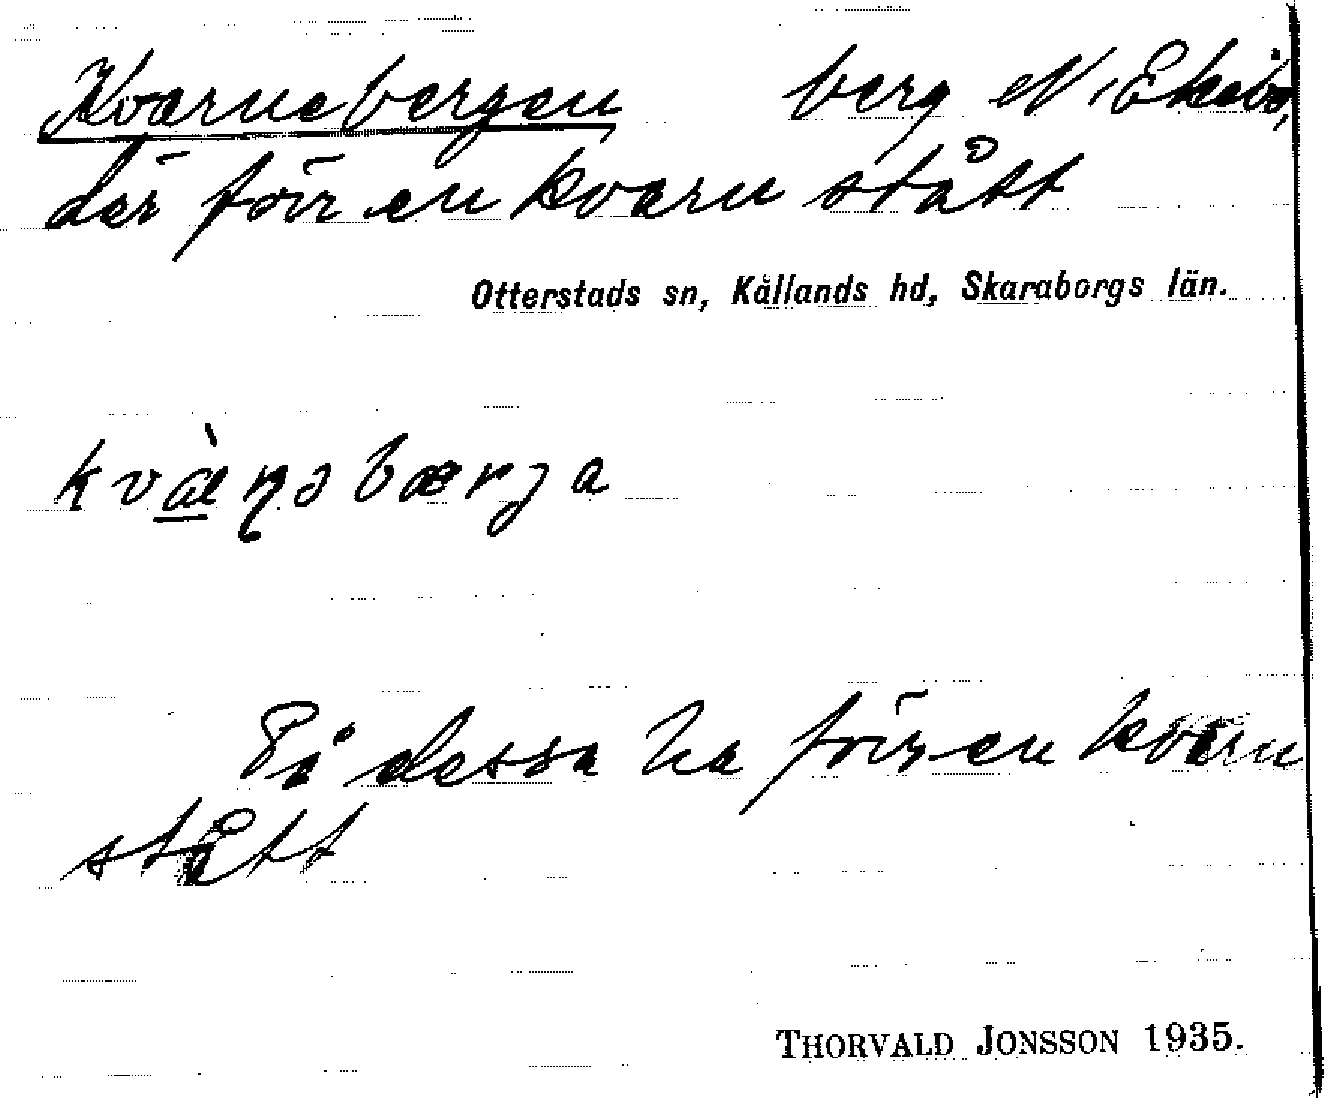 Kvarnebergen berg N. Ekebo,
där förr en kvarn stått
Otterstads sn, Kållands hd, Skaraborgs län.
kvæ̀ɳəbærja
På dessa ha förr en kvarn
stått
THORVALD JONSSON 1935.